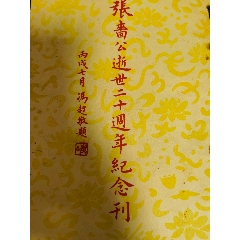 張嗇公逝世二十週年紀念刊
丙戌七月 馮超敬題